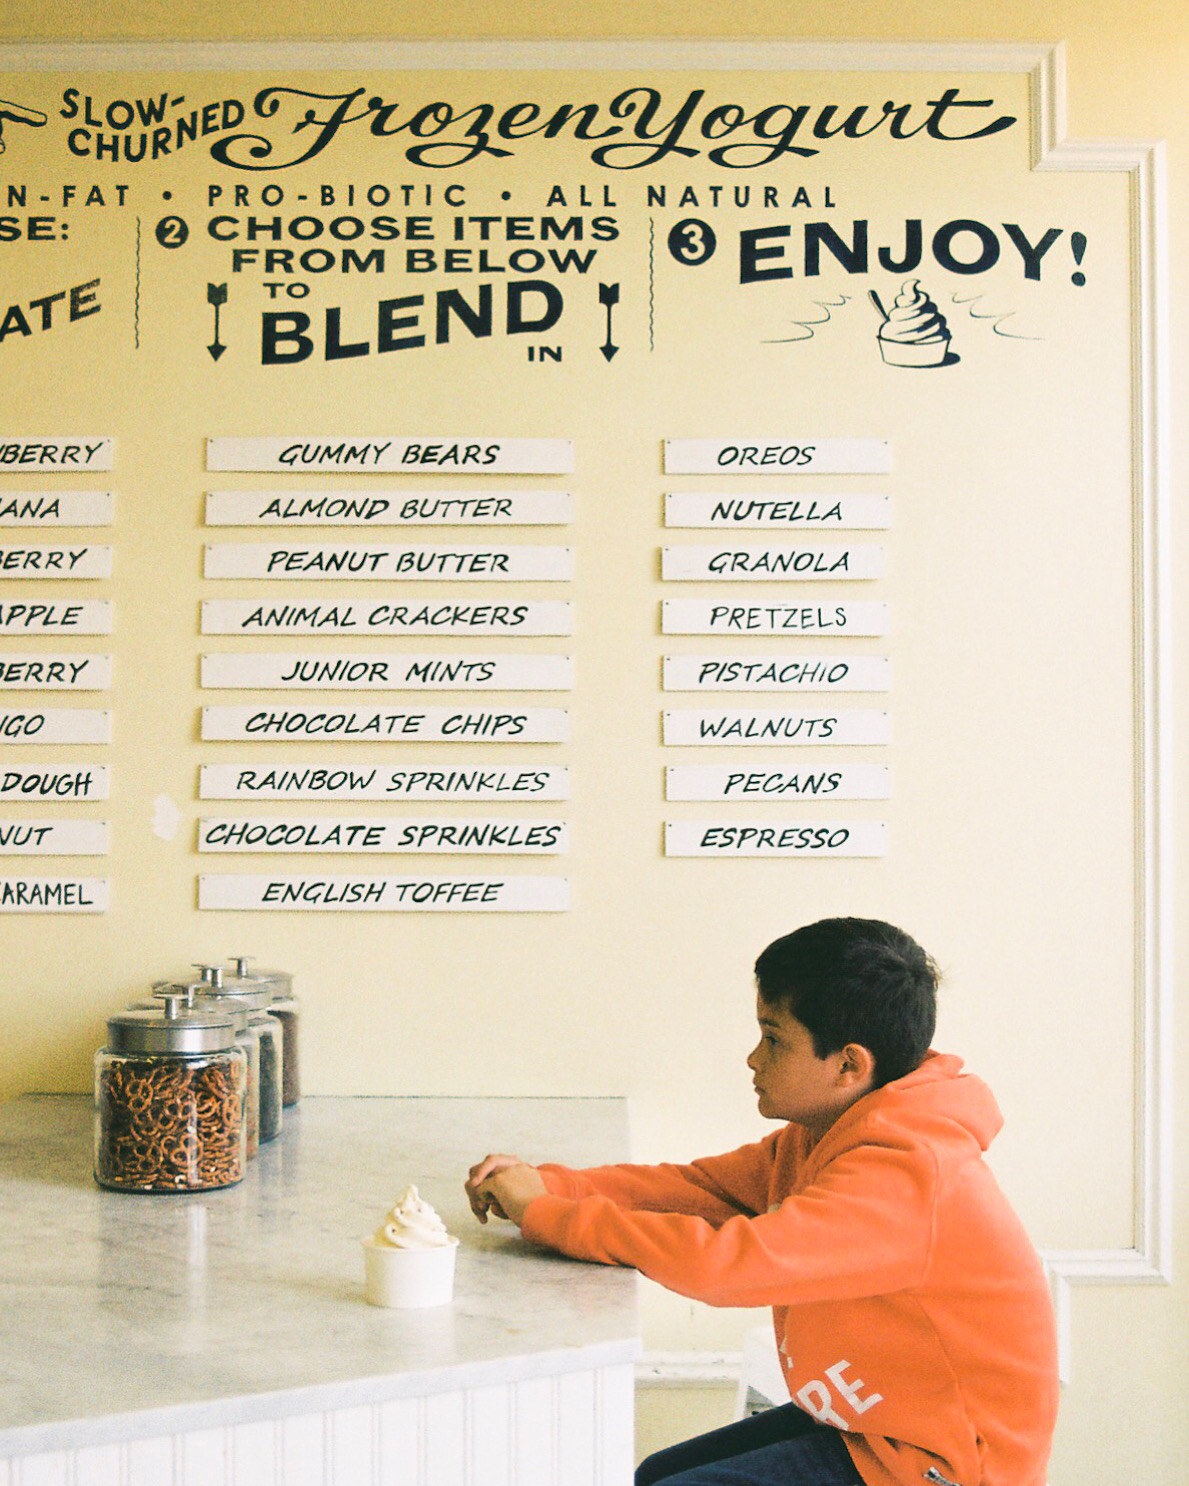 SLOW-
CHURNED Frozen Yogurt
N-FAT • PRO-BIOTIC • ALL NATURAL
SE:
ATE
2 CHOOSE ITEMS
FROM BELOW
TO
BLEND
IN
3 ENJOY!
BERRY
ANA
BERRY
APPLE
BERRY
NGO
DOUGH
NUT
CARAMEL
GUMMY BEARS
ALMOND BUTTER
PEANUT BUTTER
ANIMAL CRACKERS
JUNIOR MINTS
CHOCOLATE CHIPS
RAINBOW SPRINKLES
CHOCOLATE SPRINKLES
ENGLISH TOFFEE
OREOS
NUTELLA
GRANOLA
PRETZELS
PISTACHIO
WALNUTS
PECANS
ESPRESSO
RE